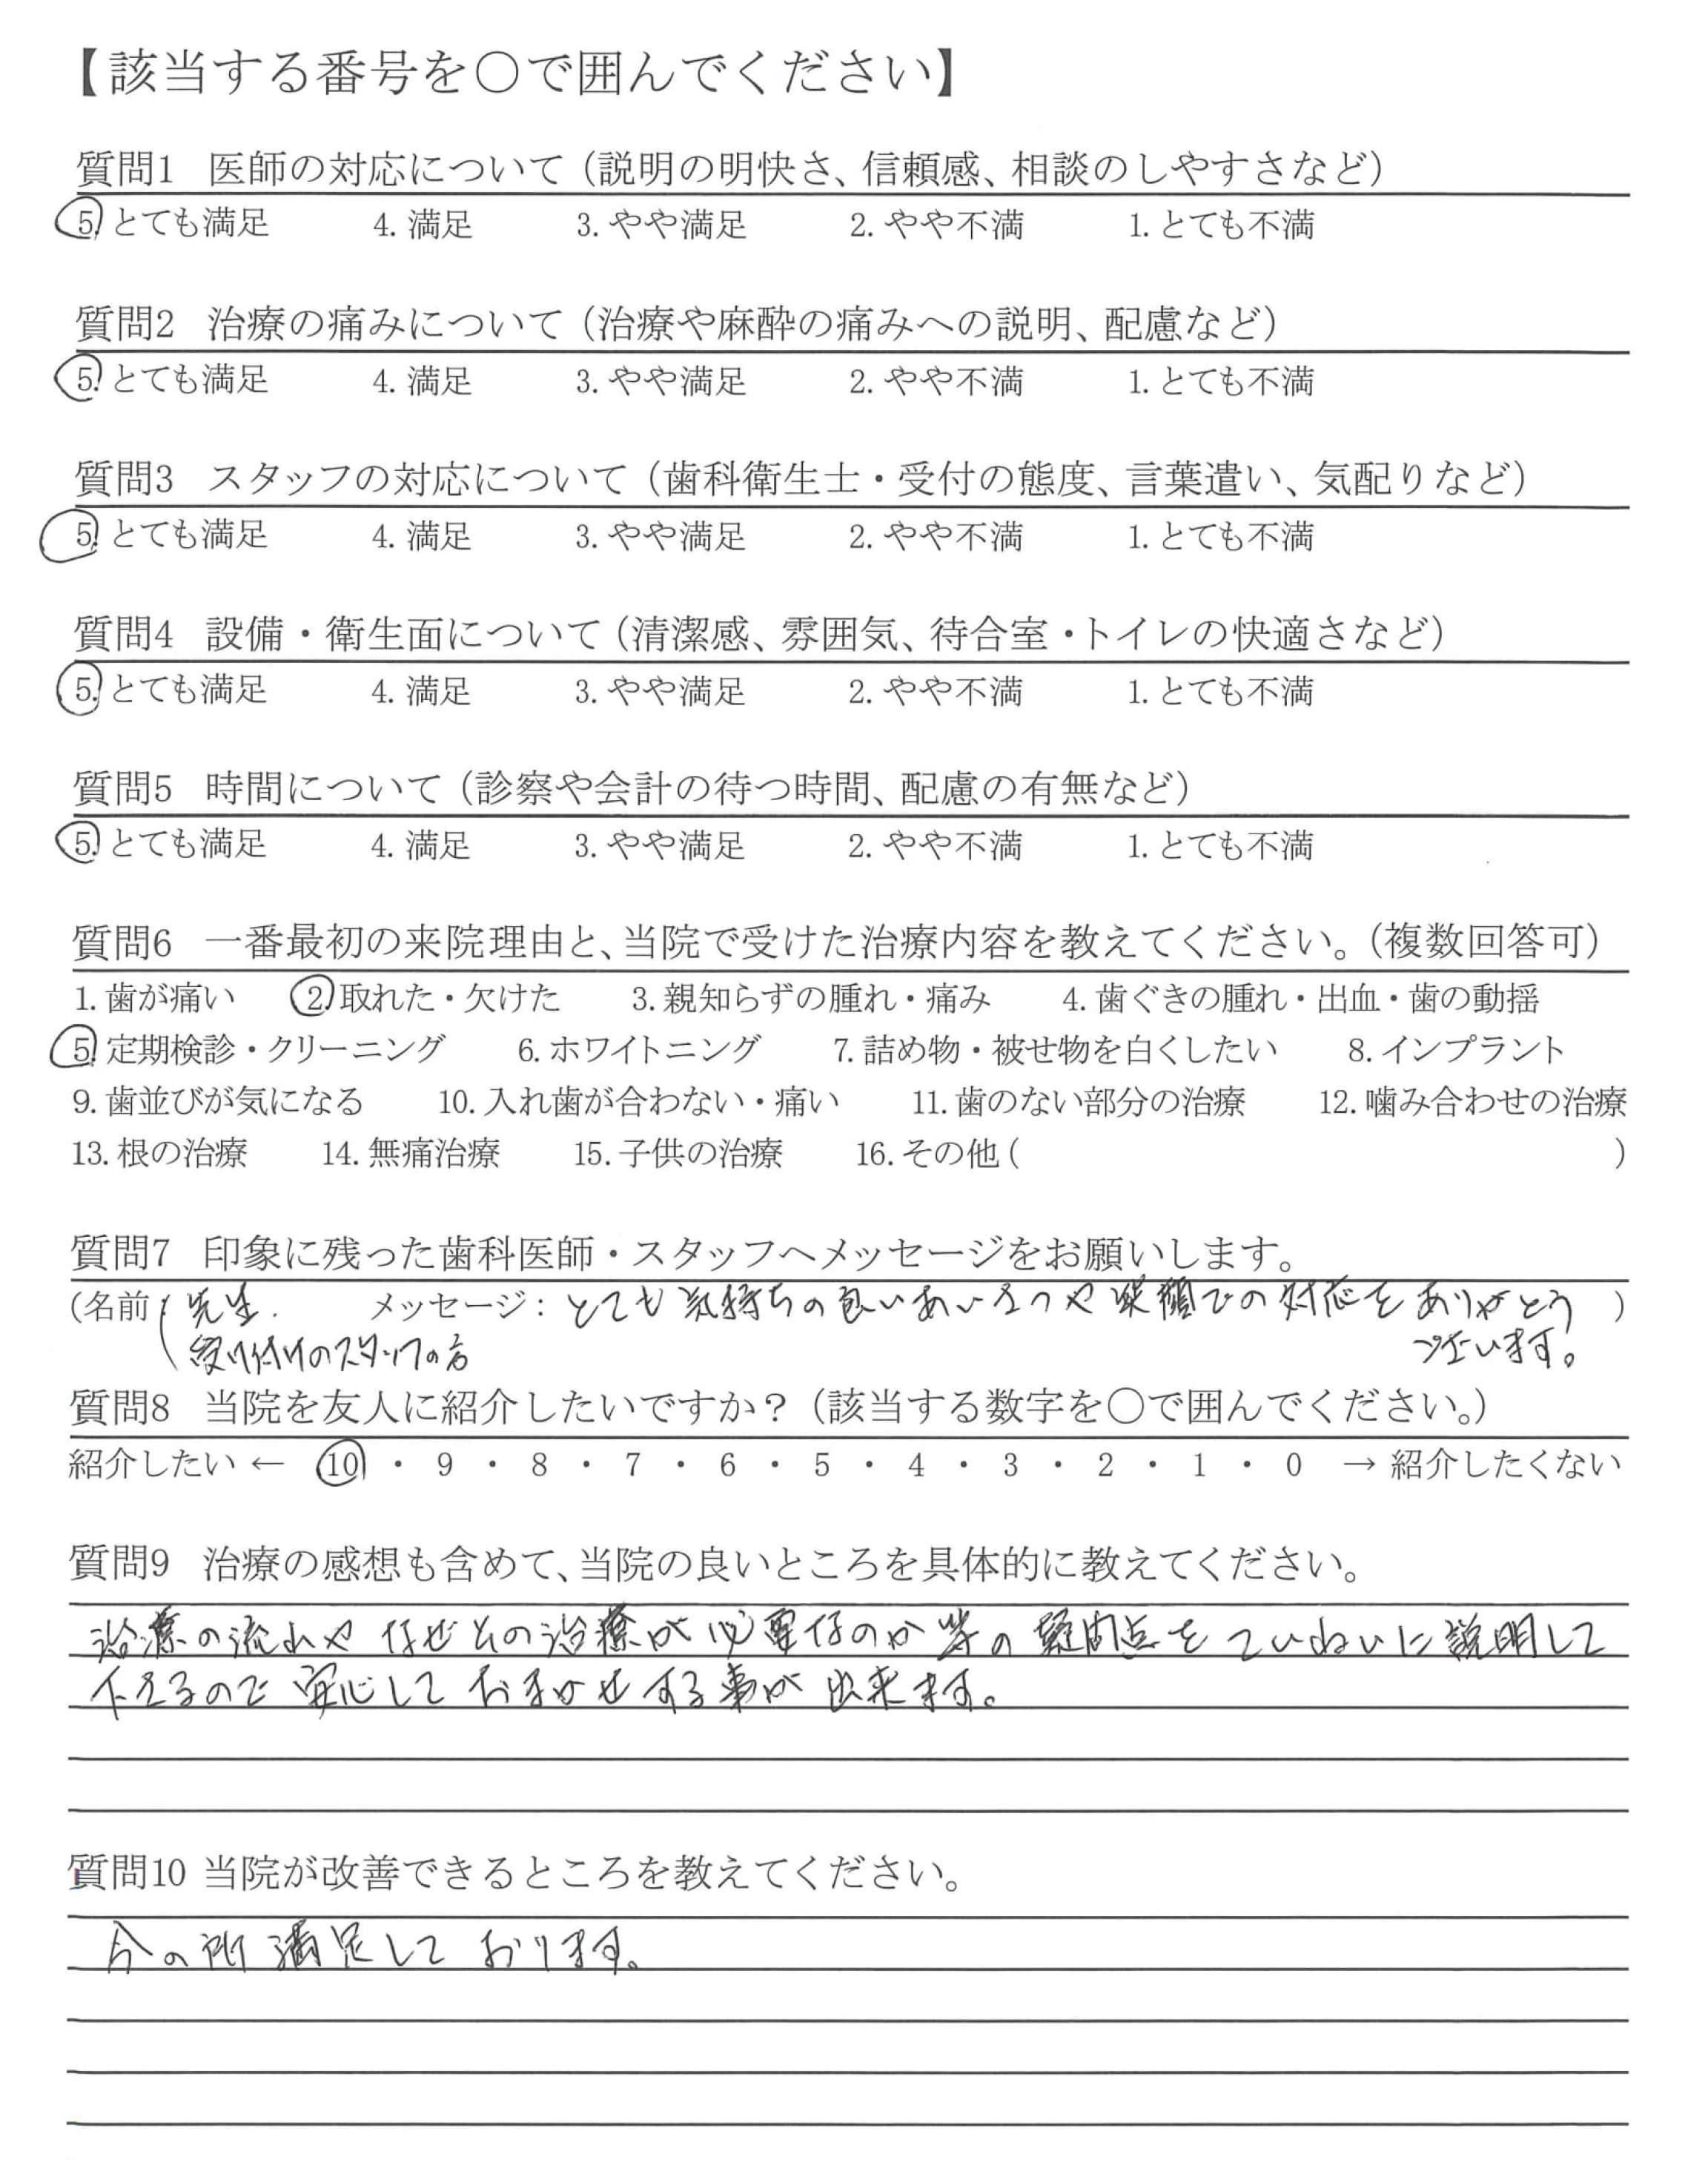 【該当する番号を○で囲んでください】
質問1 医師の対応について（説明の明快さ、信頼感、相談のしやすさなど）
5. とても満足 4. 満足 3. やや満足 2. やや不満 1. とても不満
質問2 治療の痛みについて（治療や麻酔の痛みへの説明、配慮など）
5. とても満足 4. 満足 3. やや満足 2. やや不満 1. とても不満
質問3 スタッフの対応について（歯科衛生士・受付の態度、言葉遣い、気配りなど）
5. とても満足 4. 満足 3. やや満足 2. やや不満 1. とても不満
質問4 設備・衛生面について（清潔感、雰囲気、待合室・トイレの快適さなど）
5. とても満足 4. 満足 3. やや満足 2. やや不満 1. とても不満
質問5 時間について（診察や会計の待つ時間、配慮の有無など）
5. とても満足 4. 満足 3. やや満足 2. やや不満 1. とても不満
質問6 一番最初の来院理由と、当院で受けた治療内容を教えてください。（複数回答可）
1. 歯が痛い 2. 取れた・欠けた 3. 親知らずの腫れ・痛み 4. 歯ぐきの腫れ・出血・歯の動揺
5. 定期検診・クリーニング 6. ホワイトニング 7. 詰め物・被せ物を白くしたい 8. インプラント
9. 歯並びが気になる 10. 入れ歯が合わない・痛い 11. 歯のない部分の治療 12. 噛み合わせの治療
13. 根の治療 14. 無痛治療 15. 子供の治療 16. その他（ ）
質問7 印象に残った歯科医師・スタッフへメッセージをお願いします。
（名前： 先生. メッセージ： とても気持ちの良いあいさつや笑顔での対応をありがとう ）
受け付けのスタッフの方 ございます。
質問8 当院を友人に紹介したいですか？（該当する数字を○で囲んでください。）
紹介したい ← 10 ・ 9 ・ 8 ・ 7 ・ 6 ・ 5 ・ 4 ・ 3 ・ 2 ・ 1 ・ 0 → 紹介したくない
質問9 治療の感想も含めて、当院の良いところを具体的に教えてください。
治療の流れや なぜその治療が必要なのか等の疑問点をていねいに説明して
下さるので安心しておまかせする事が出来ます。
質問10 当院が改善できるところを教えてください。
今の所満足しております。